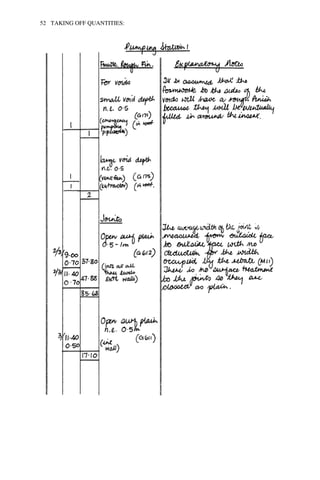 52 TAKING OFF QUANTITIES:
Pumping Station 1
Fmwk. Rough Fin.
Explanatory Notes
For voids
small void depth
n.e. 0·5
(G171)
(emergency
pumping in roof
pipework)
1
1
It is assumed that the
formwork to the sides of the
voids will have a rough finish
because they will be eventually
filled in around the insert.
large void depth
n.e. 0·5
1 (vent fan) (G17
1 (extractor) in roof.
2
Joints
Open surf. plain
0·5 - 1m
(G612)
2/3/ 9·00
0·70 37·80
2/3/ 11·40
0·70 47·88
(jnts at all
three levels
Extl walls)
85·68
The average width of the joint is
measured from outside face
to outside face with no
deduction for the width
occupied by the rebate (M11)
There is no surface treatment
to the joints so they are
classed as plain.
Open surf. plain
n.e. 0·5m
(G611)
3/ 11·40
0·50
(int
wall)
17·10